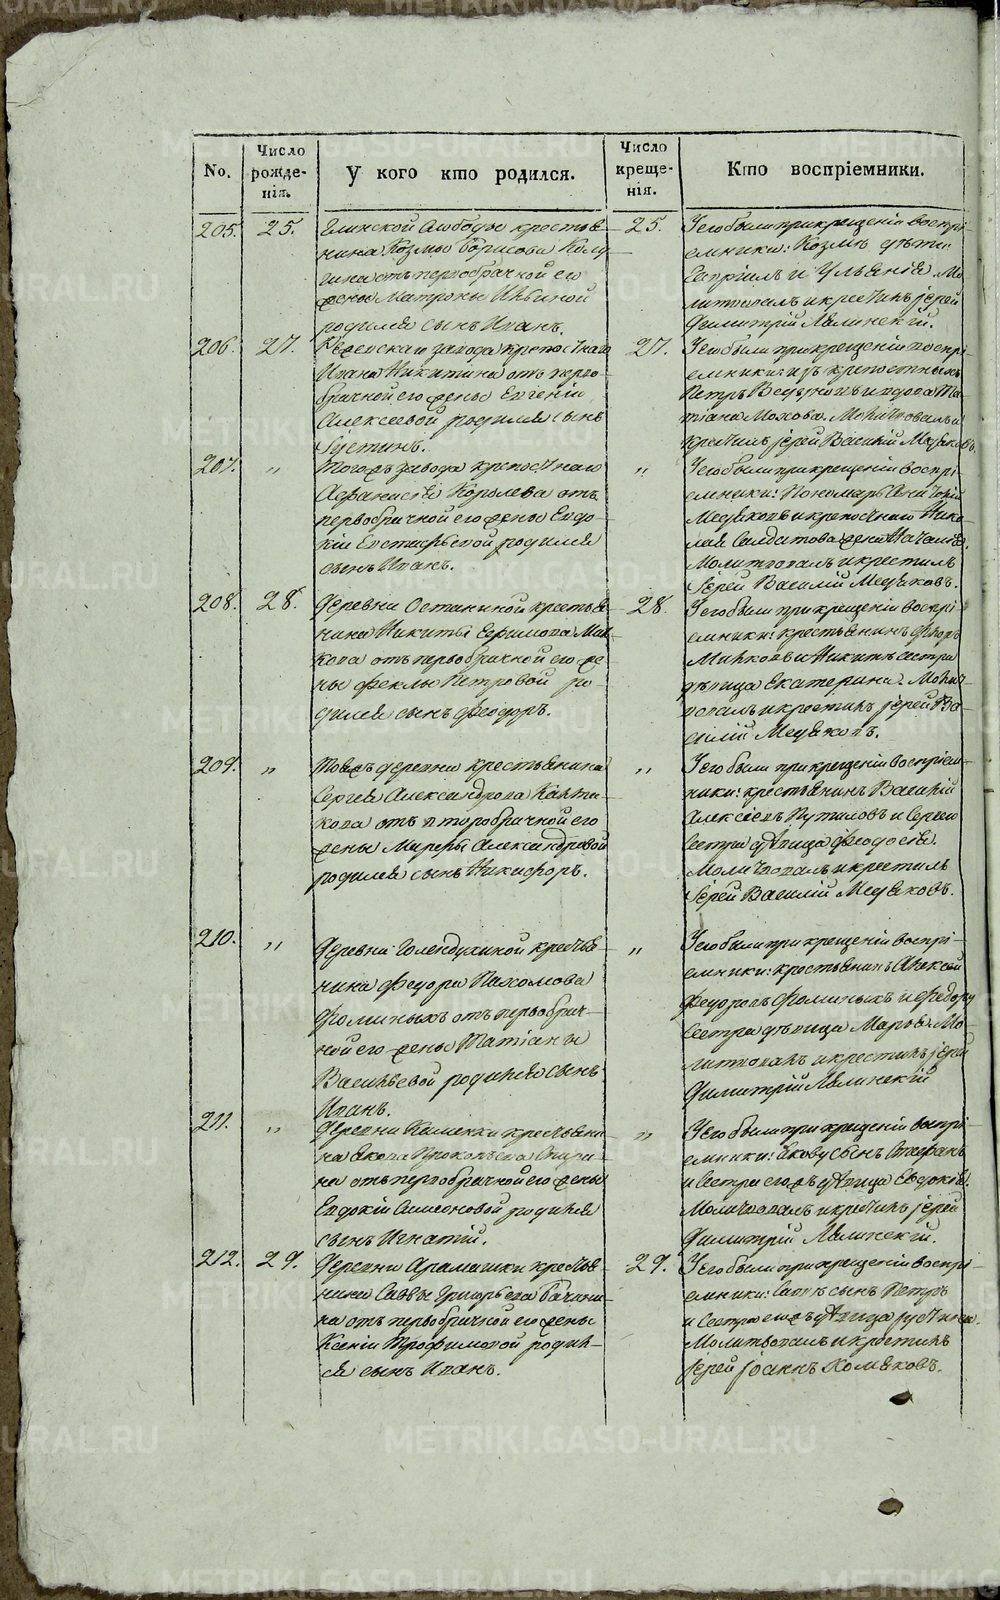 No.
Число рожде-нія.
У кого кто родился.
Число креще-нія.
Кто воспріемники.
205.
25.
слободы крестья-
нина Козмы Борисова
отъ первобрачной его
жены Матроны Ильиной
родился сынъ Иванъ.
25.
У его были при крещеніи воспрі-
емники: Козмы дѣти
Гавріилъ и Ульянія. Мо-
литвовалъ и крестилъ іерей
Димитрій Лялинскій.
206.
27.
завода крепостнаго
Ивана Никитина отъ перво-
брачной его жены Евгеніи
Алексеевой родился сынъ
Іустинъ.
27.
У его были при крещеніи воспрі-
емники: изъ крепостныхъ
Петръ и вдова Та-
тіана Мохова. Молитвовалъ и
крестилъ іерей Василій
207.
„
Тогожъ завода крепостнаго
Королева отъ
первобрачной его жены Евдо-
кіи Евстафьевой родился
сынъ Иванъ.
„
У его были при крещеніи воспрі-
емники: Пономарь
и крепостнаго Нико-
лая Солдатова жена
Молитвовалъ и крестилъ
Іерей Василій
208.
28.
Деревни Останиной крестья-
нина Никиты Ефимова Мал-
кова отъ первобрачной его же-
ны Феклы Петровой ро-
дился сынъ Феодоръ.
28.
У его были при крещеніи воспрі-
емники: крестьянинъ Федоръ
Малковъ и Никиты сестра
дѣвица Екатерина. Молит-
вовалъ и крестилъ іерей Ва-
силій
209.
„
Тояжъ деревни крестьянина
Сергея Александрова
отъ второбрачной его
жены Александровой
родился сынъ Никифоръ.
„
У его были при крещеніи воспріем-
ники: крестьянинъ Василій
Алексеевъ Путиловъ и Сергея
сестра дѣвица Феодосія.
Молитвовалъ и крестилъ
Іерей Василій
210.
„
Деревни Голендухиной крестья-
нина Федора Пахомова
Фоминыхъ отъ первобрач-
ной его жены Татіаны
Васильевой родился сынъ
Иванъ.
„
У его были при крещеніи воспрі-
емники: крестьянинъ Алексей
Федоровъ Фоминыхъ и Федора
сестра дѣвица Марья. Мо-
литвовалъ и крестилъ іерей
Димитрій Лялинскій
211.
„
Деревни Каменки крестьяни-
на Якова Прокопьева
отъ первобрачной его жены
Евдокіи Симеоновой родился
сынъ Игнатій.
„
У его были при крещеніи воспрі-
емники: Якову сынъ Стефанъ
и сестра его жъ дѣвица Евдокія.
Молитвовалъ и крестилъ іерей
Димитрій Лялинскій.
212.
29.
Деревни Арамашки крестья-
нина Саввы Григорьева
отъ первобрачной его жены
Ксеніи Трофимовой родил-
ся сынъ Иванъ.
29.
У его были при крещеніи воспрі-
емники: Саввы сынъ Петръ
и сестра его жъ дѣвица Іустина.
Молитвовалъ и крестилъ
Іерей Іоаннъ Хомяковъ.
METRIKI.GASO-URAL.RU